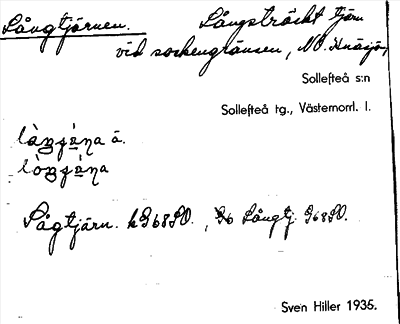 Långtjärnen. Långsträckt tjärn
vid sockengränsen, NO. Knäsjön,
Sollefteå s:n
Sollefteå tg., Västernorrl. l.
Lågtjärn. k G68SO., Långtj. G68SO.
Sven Hiller 1935.